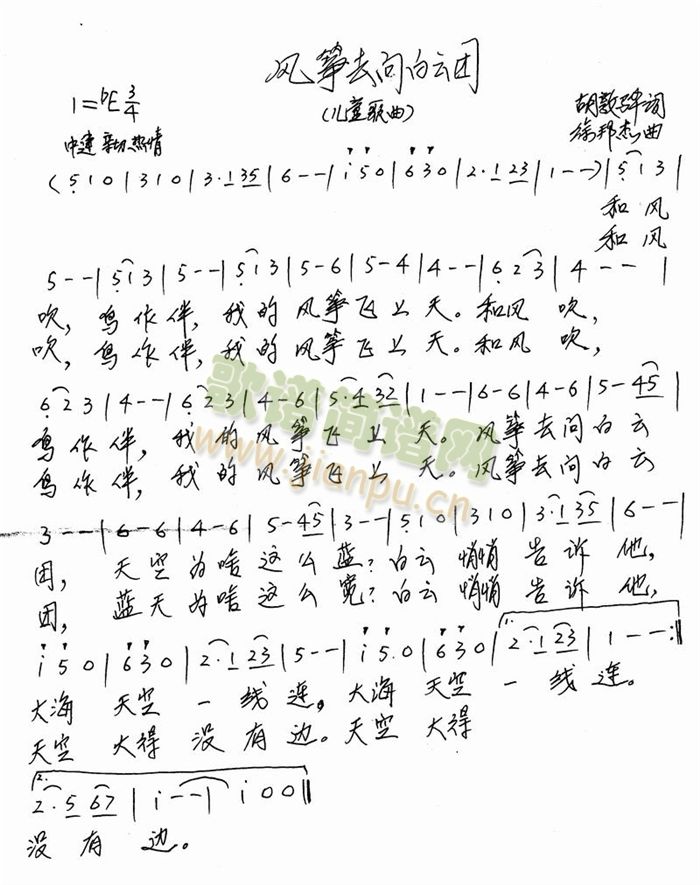 风筝去问白云团
(儿童歌曲)
1=bE 3/4
中速 亲切 热情
词
徐邦杰曲
(5 1 0 | 3 1 0 | 3· 1 3 5 | 6 - - | i 5 0 | 6 3 0 | 2· 1 2 3 | 1 - - ) | 5 1 3 |
和 风
和 风
5 - - | 5 1 3 | 5 - - | 5 1 3 | 5 - 6 | 5 - 4 | 4 - - | 6 2 3 | 4 - - |
吹, 鸟作伴, 我的风筝飞上天。和风 吹,
吹, 鸟作伴, 我的风筝飞上天。和风 吹,
6 2 3 | 4 - - | 6 2 3 | 4 - 6 | 5· 4 3 2 | 1 - - | 6 - 6 | 4 - 6 | 5 - 4 5 |
鸟作伴, 我的风筝飞上天。风筝去问白云
鸟作伴, 我的风筝飞上天。风筝去问白云
3 - - | 6 - 6 | 4 - 6 | 5 - 4 5 | 3 - - | 5 1 0 | 3 1 0 | 3· 1 3 5 | 6 - - |
团, 天空为啥这么蓝?白云 悄悄 告诉他,
团, 蓝天为啥这么宽?白云 悄悄 告诉他,
i 5 0 | 6 3 0 | 2· 1 2 3 | 5 - - | i 5 0 | 6 3 0 | 1. 2· 1 2 3 | 1 - - :||
大海 天空 一线连。大海 天空 一线连。
天空 大得 没有边。天空 大得
2. 2· 5 6 7 | i - - | i 0 0 ||
没有 边。
歌谱简谱网
www.jianpu.cn